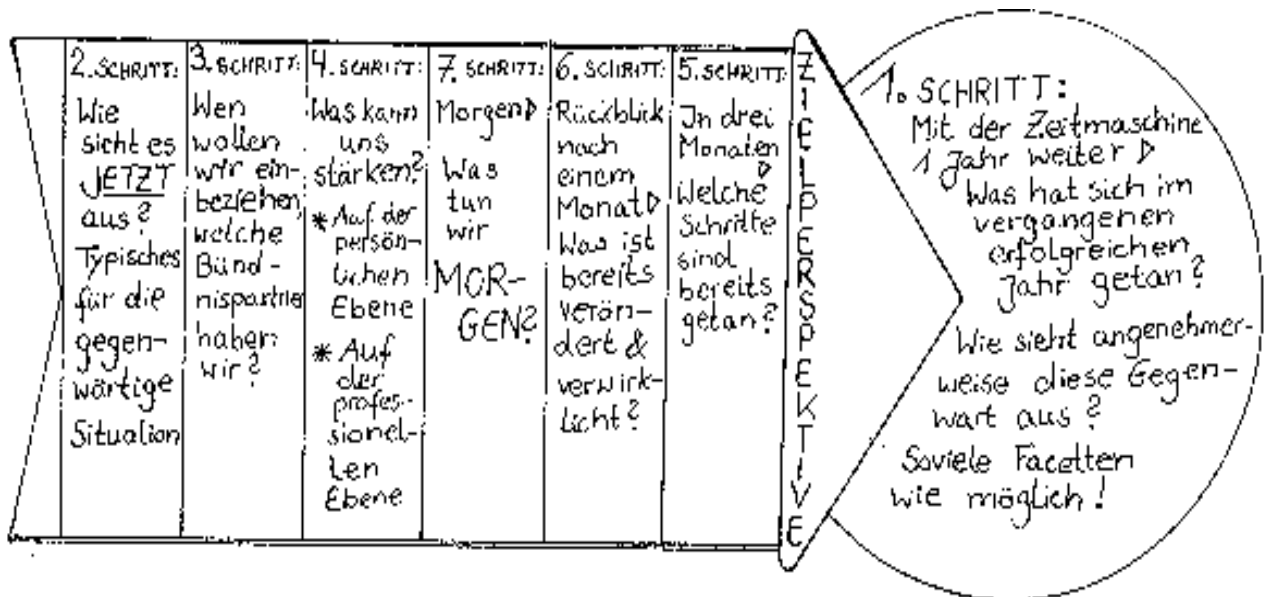 2. SCHRITT:
Wie
sieht es
JETZT
aus?
Typisches
für die
gegen-
wärtige
Situation
3. SCHRITT:
Wen
wollen
wir ein-
beziehen,
welche
Bünd-
nispartner
haben
wir?
4. SCHRITT:
Was kann
uns
stärken?
* Auf der
persön-
lichen
Ebene
* Auf
der
profes-
sionel-
len
Ebene
7. SCHRITT:
Morgen▷
Was
tun
wir
MOR-
GEN?
6. SCHRITT:
Rückblick
nach
einem
Monat▷
Was ist
bereits
verän-
dert &
verwirk-
licht?
5. SCHRITT:
In drei
Monaten
▷
Welche
Schritte
sind
bereits
getan?
ZIELPERSPEKTIVE
1. SCHRITT:
Mit der Zeitmaschine
1 Jahr weiter ▷
Was hat sich im
vergangenen
erfolgreichen
Jahr getan?
Wie sieht angenehmer-
weise diese Gegen-
wart aus?
Soviele Facetten
wie möglich!